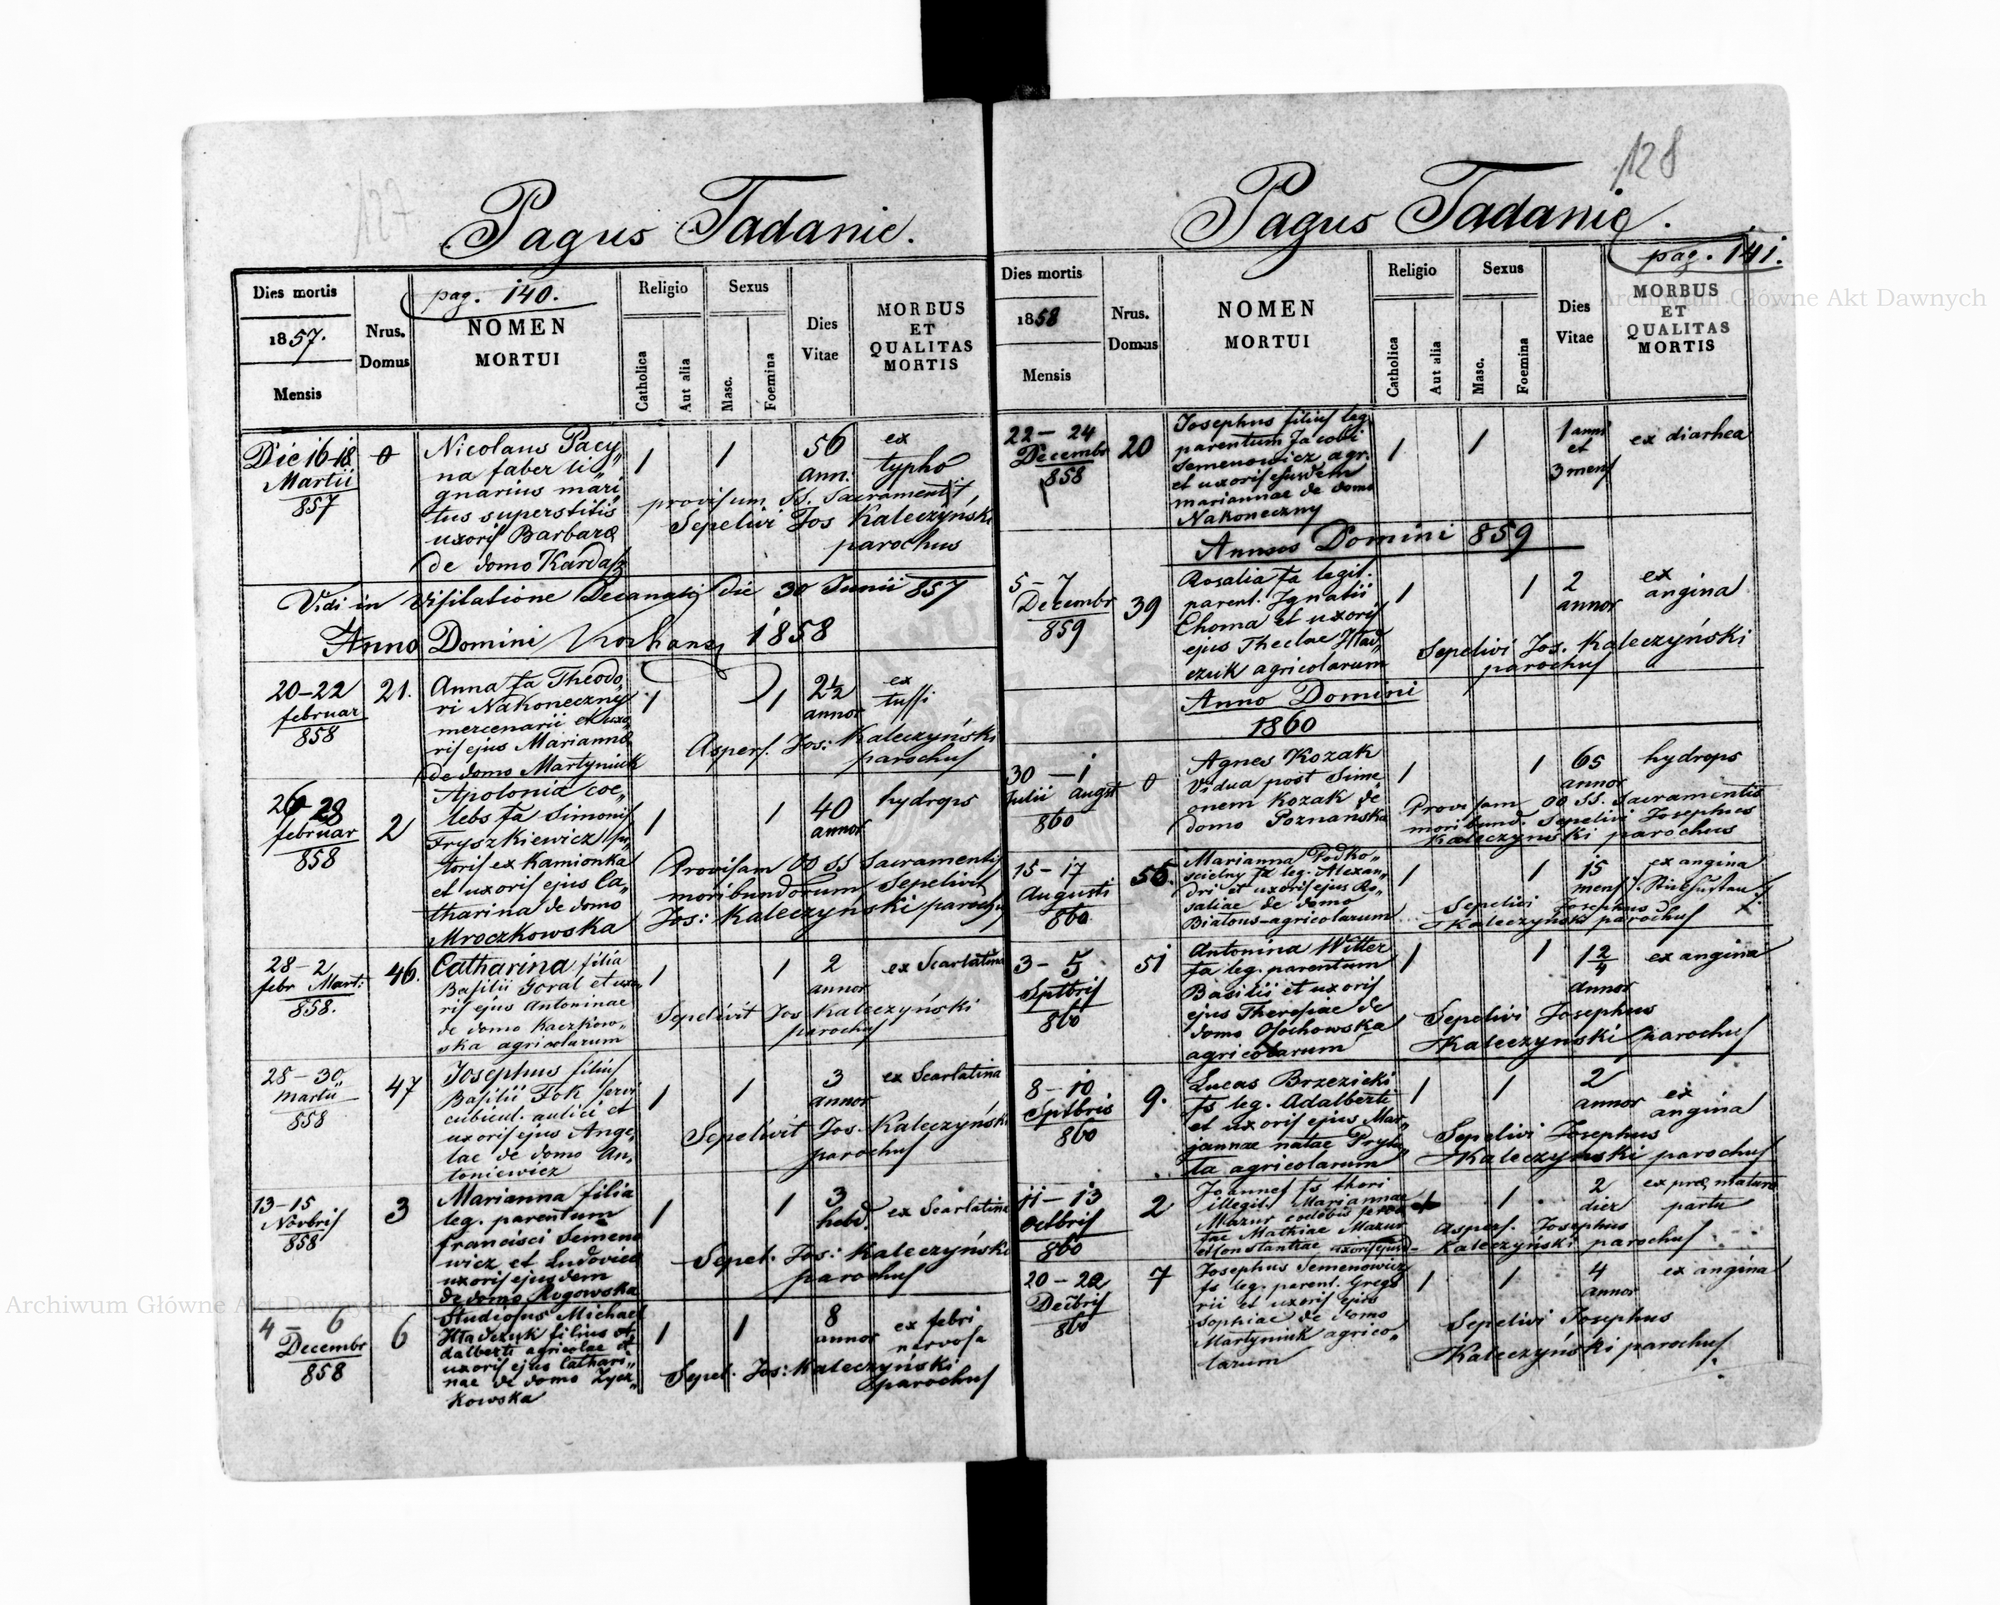 127
Pagus Tadanie.
Dies mortis
1857.
Mensis
Nrus.
Domus
pag. 140.
NOMEN
MORTUI
Religio
Catholica
Aut alia
Sexus
Masc.
Foemina
Dies
Vitae
MORBUS
ET
QUALITAS
MORTIS
Die 16-18
Martii
857
0
Nicolaus Pacy„
na faber li„
gnarius mari„
tus superstitis
uxoris Barbarae
de domo Kardasz
1
1
56
ann.
ex
typho
provisum SS. Sacramentis
Sepelivi Jos Kaleczyński
parochus
Vidi in Visitatione Decanali die 30 Junii 857
Anno Domini 1858
20-22
februar
858
21.
Anna fa Theodo„
ri Nakoneczny
mercenarii et uxo„
ris ejus Marianna
de domo Martyniuk
1
1
2½
annor
ex
tussi
Aspers. Jos: Kaleczyński
parochus
26-28
februar
858
2
Apolonia coe„
lebs fa Simonis
Fryszkiewicz su„
toris ex Kamionka
et uxoris ejus Ca„
tharina de domo
Mroczkowska
1
1
40
annor
hydrops
Provisam OO SS Sacramentis
moribundorum Sepelivit
Jos: Kaleczyński parochus
28-2
febr Mart:
858.
46.
Catharina filia
Basilii Goral et uxo„
ris ejus Antoninae
de domo Kaczkow„
ska agricolarum
1
1
2
annor
ex Scarlatina
Sepelivit Jos Kaleczyński
parochus
28-30
martii
858
47
Josephus filius
Basilii Fok servi
cubicul. aulici et
uxoris ejus Ange„
lae de domo An„
toniewicz
1
1
3
annor
ex Scarlatina
Sepelivit Jos. Kaleczyński
parochus
13-15
Novbris
858
3
Marianna filia
leg. parentum
francisci Semeno
wicz et Ludovica
uxoris ejusdem
de domo Rogowska
1
1
3
hebd.
ex Scarlatina
Sepel. Jos: Kaleczyński
parochus
4-6
Decembr
858
6
Studiosus Michael
Hladczuk filius A
dalberti agricolae et
uxoris ejus Cathari„
nae de domo Zycz„
kowska
1
1
8
annor
ex febri
nervosa
Sepel. Jos: Kaleczyński
parochus
128
Pagus Tadanie.
Dies mortis
1858
Mensis
Nrus.
Domus
NOMEN
MORTUI
Religio
Catholica
Aut alia
Sexus
Masc.
Foemina
Dies
Vitae
pag. 141.
MORBUS
ET
QUALITAS
MORTIS
22-24
Decembr
858
20
Josephus filius leg.
parentum Jacobi
Semenowicz agr.
et uxoris ejusdem
mariannae de domo
Nakoneczny
1
1
1 anni
et
3 mens
ex diarhea
Annus Domini 859
5-7
Decembr
859
39
Rosalia fa legit.
parent. Ignatii
Choma et uxoris
ejus Theclae Hlad„
czuk agricolarum
1
1
2
annor
ex
angina
Sepelivi Jos. Kaleczyński
parochus
Anno Domini
1860
30-1
Julii August
860
0
Agnes Kozak
Vidua post Sime„
onem Kozak de
domo Poznańska
1
1
65
annor
hydrops
Provisam OO SS. Sacramentis
moribund. Sepelivi Josephus
Kaleczyński parochus
15-17
Augusti
860.
55.
Marianna Podko„
scielny fa leg. Alexan„
dri et uxoris ejus Ro„
saliae de domo
Bialous-agricolarum
1
1
15
mens
ex angina
Sepelivi Josephus
Kaleczyński parochus
3-5
Sptbris
860
51
Antonina Witter
fa leg. parentum
Basilii et uxoris
ejus Theresiae de
domo Osochowska
agricolarum
1
1
1 2/4
annor
ex angina
Sepelivi Josephus
Kaleczyński parochus
8-10
Sptbris
860
9.
Lucas Brzezicki
fs leg. Adalberti
et uxoris ejus Mar„
jannae natae Pryta„
la agricolarum
1
1
2
annor
ex
angina
Sepelivi Josephus
Kaleczyński parochus
11-13
Octbris
860
2
Joannes fs thori
illegit. Mariannae
Mazur coelebis
Mathiae Mazur
et Constantiae uxoris ejusd-
1
1
2
dies
ex praematura
partu
Aspers. Josephus
Kaleczyński parochus
20-22
Decbris
860
7
Josephus Semenowicz
fs leg. parent. Grego
rii et uxoris ejus
Sophiae de domo
Martyniuk agrico„
larum
1
1
4
annor
ex angina
Sepelivi Josephus
Kaleczyński parochus.
Archiwum Główne Akt Dawnych
Archiwum Główne Akt Dawnych